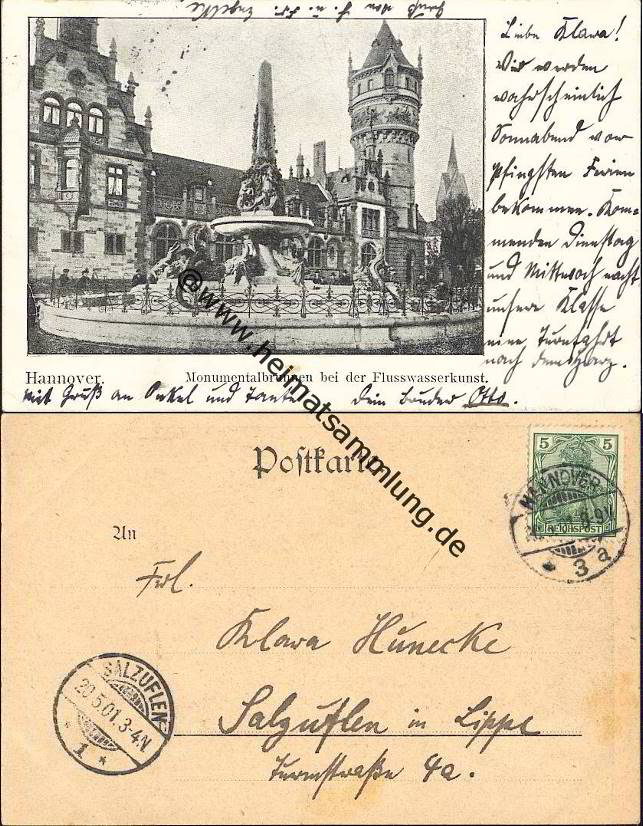 Gruß von H. u. Fr. Engelke
Liebe Klara!
Wir werden
wahrscheinlich
Sonnabend vor
Pfingsten Ferien
bekommen. Kom-
menden Dienstag
und Mittwoch macht
unsere Klasse
eine Turnfahrt
nach dem Harz.
Hannover. Monumentalbrunnen bei der Flusswasserkunst.
Mit Gruß an Onkel und Tante Dein Bruder Otto.
@www.heimatsammlung.de
Postkarte
5 5
REICHSPOST
HANNOVER
3 a
An
Frl.
Klara Hunecke
Salzuflen in Lippe
Turmstraße 4a.
SALZUFLEN
20.5.01.3-4N
* 1 *